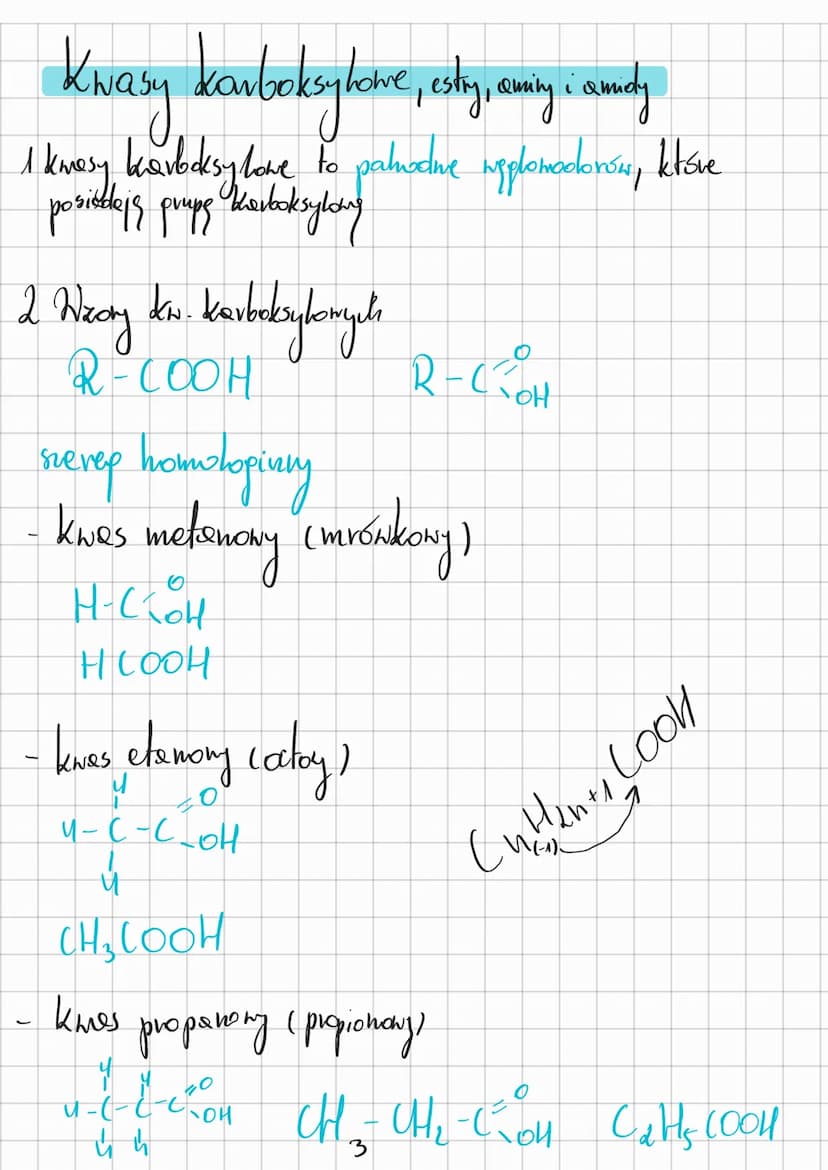 Kwasy karboksylowe, estry, aminy i amidy
1 kwasy karboksylowe to pochodne węglowodorów, które
posiadają grupę karboksylową
2 Wzory kw. karboksylowych
R-COOH R-C=O-OH
szereg homologiczny
- kwas metanowy (mrówkowy)
H-C=O-OH
HCOOH
- kwas etanowy (octowy)
H
H-C-C=O-OH
H
CnH2n+1COOH
(-1)
CH3COOH
- kwas propanowy (propionowy)
H H
H-C-C-C=O-OH CH3-CH2-C=O-OH C2H5COOH
H H